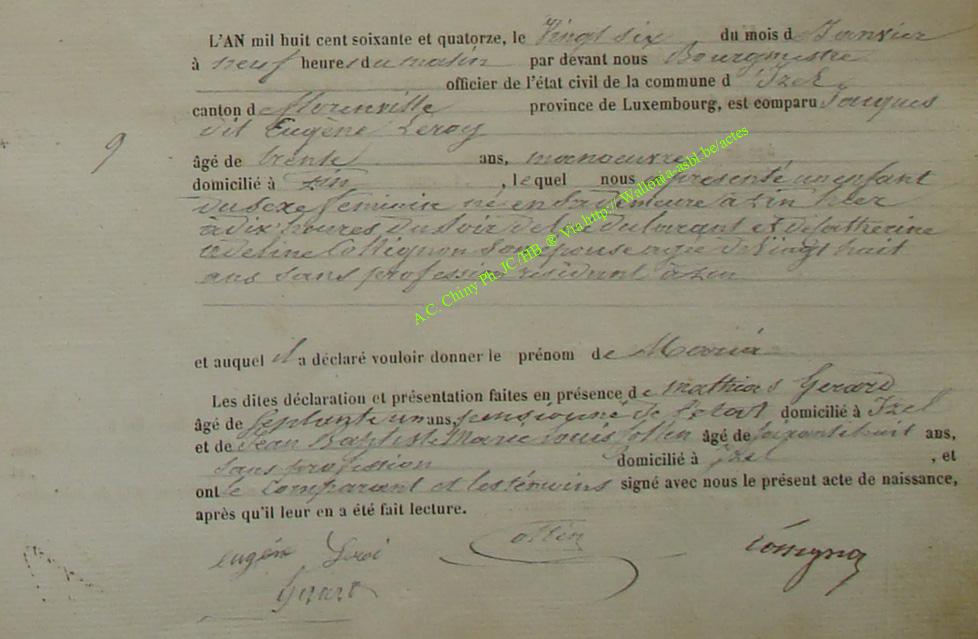 L'AN mil huit cent soixante et quatorze, le Vingt six du mois d Janvier
à neuf heures du matin par devant nous Bourgmestre
officier de l'état civil de la commune d'Izel
canton d Florenville province de Luxembourg, est comparu Jacques
dit Eugène Leroy
9
âgé de trente ans, manoeuvre
domicilié à Zin, lequel nous a présenté un enfant
du sexe féminin né en sa demeure à Zin hier
à dix heures du soir de lui déclarant et de Catherine
adeline Collignon son épouse agée de vingt huit
ans sans profession résidant à Zin
et auquel il a déclaré vouloir donner le prénom de Maria
Les dites déclaration et présentation faites en présence de mathias Gerard
âgé de Septante un ans, pensionné de l'etat domicilié à Izel
et de Jean Baptiste Marie Louis Collin âgé de soixante huit ans,
sans profession domicilié à Izel, et
ont le comparant et les témoins signé avec nous le présent acte de naissance,
après qu'il leur en a été fait lecture.
eugène Leroi Collin
Gerard
A.C. Chiny Ph. JC/HB @ Via http://Wallonia-asbl.be/actes